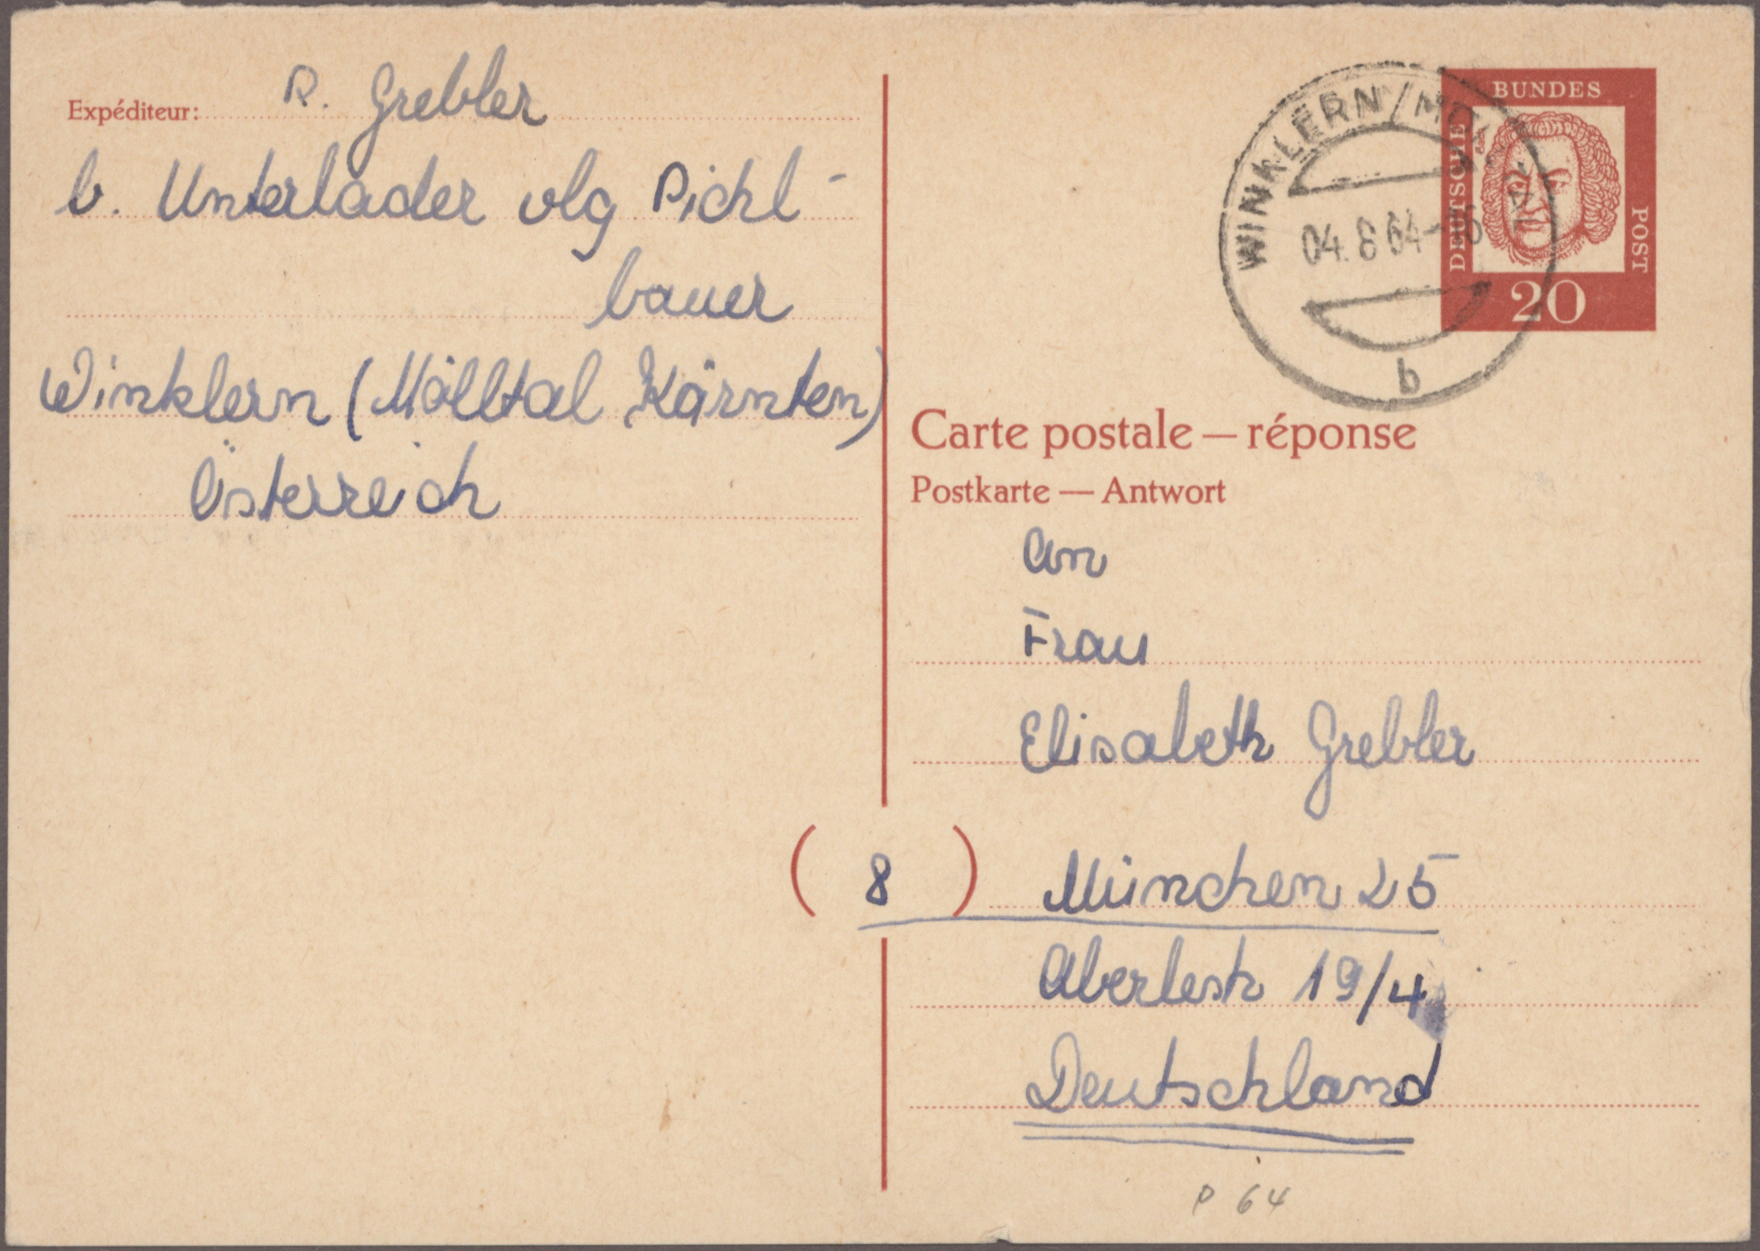 Expéditeur: R. Grebler
b. Unterlader vlg Pichl-
bauer
Winklern (Mölltal Kärnten)
Österreich
WINKLERN/MÖLLTAL
04.8.64-16
b
BUNDES
DEUTSCHE
POST
20
Carte postale — réponse
Postkarte — Antwort
An
Frau
Elisabeth Grebler
(8) München 25
Aberlestr 19/4
Deutschland
P 64